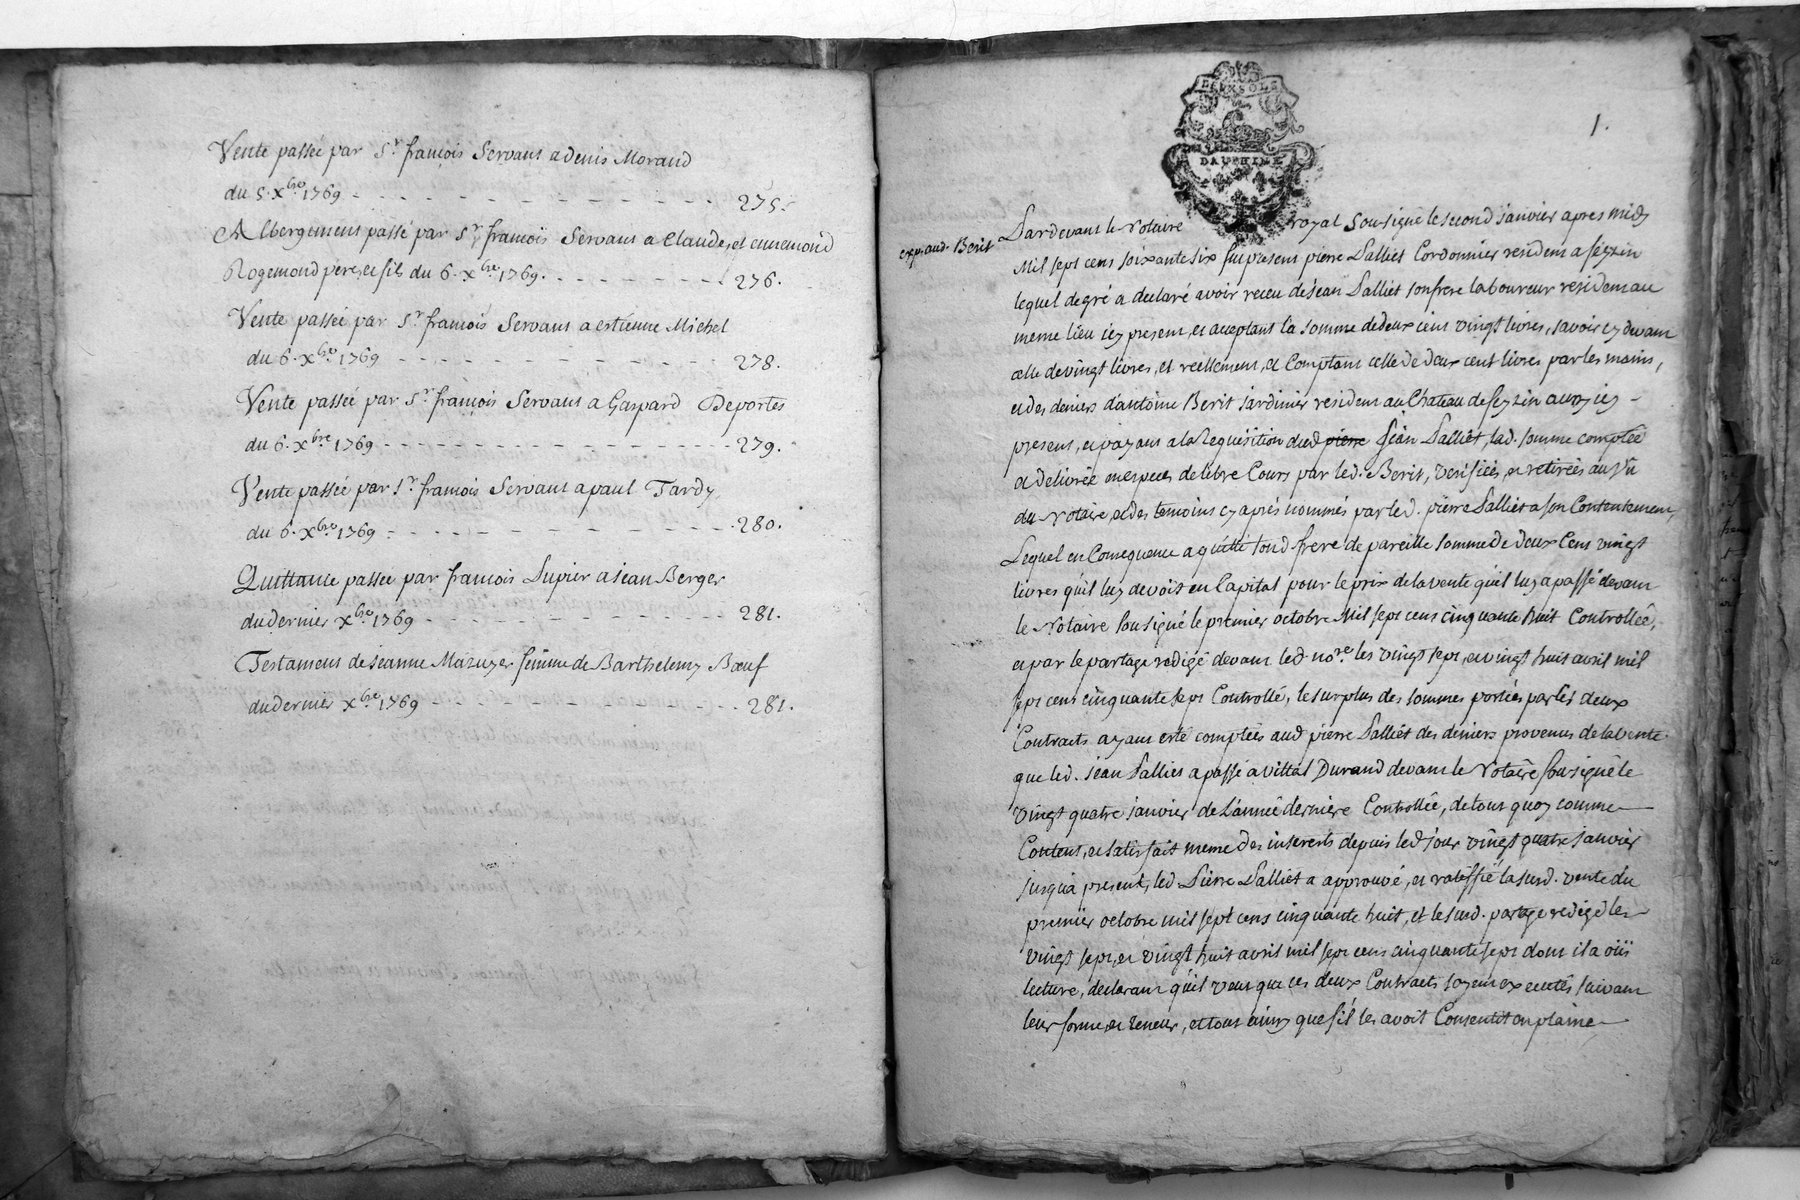 Vente passée par Sr. françois Servans a denis Morand
du 5. Xbre 1769 - - - - - - - - - - - - 275.
Albergement passé par Sr. françois Servans a Claude, et ennemond
Rogemond pere, et fils du 6. Xbre 1769. - - - - - - - - 276.
Vente passée par Sr. françois Servans a estienne Michel
du 6. Xbre 1769 - - - - - - - - - - - - 278.
Vente passée par Sr. françois Servans a Gaspard Deportes
du 6. Xbre 1769 - - - - - - - - - - - - 279.
Vente passée par Sr. françois Servans a paul Tardy
du 6. Xbre 1769 - - - - - - - - - - - - 280.
Quittance passée par françois Lupier a jean Berger
du dernier Xbre 1769 - - - - - - - - - - 281.
Testament de jeanne Mazuyer femme de Barthelemy Bœuf
du dernier Xbre 1769 - - - - - - - - - - 281.
DEUX SOLS
DAUPHINE
1.
exp. aud. Berit
Pardevant le Notaire royal Sousigné le second janvier apres midy
Mil sept cens soixante six fut present pierre Palliet Cordonnier resident a seyzin
lequel de gré a declaré avoir receu de jean Palliet son frere laboureur resident au
meme lieu icy present, et acceptant la somme de deux cens vingt livres, savoir cy devant
celle de vingt livres, et reellement, et Comptant celle de deux cent livres par les mains,
et des deniers d'antoine Berit jardinier resident au Chateau de seyzin aussy icy -
present, et payant a la Requisition dud. pierre jean Palliet, lad. somme comptée
et delivrée en especes de libre Cours par led. Berit, verifiées, et retirées au vû
du Notaire, et des temoins cy aprés nommés par led. pierre Palliet a son Contentement,
Lequel en Consequence a quitté sond. frere de pareille somme de deux Cens vingt
livres qu'il luy devoit en Capital pour le prix de la vente qu'il luy a passé devant
le Notaire sousigné le premier octobre Mil sept cens cinquante huit Controllée,
et par le partage redigé devant led. nore. les vingt sept, et vingt huit avril mil
sept cens cinquante sept Controllé, le surplus des sommes portées par les deux
Contracts ayant eté comptées aud. pierre Palliet des deniers provenus de la vente
que led. jean Palliet a passé a vittal Durand devant le Notaire sousigné le
vingt quatre janvier de L'année derniere Controllée, de tout quoy comme
Content, et satisfait meme des interests depuis led. jour vingt quatre janvier
jusqu'a present, led. Pierre Palliet a approuvé, et ratiffié la susd. vente du
premier octobre mil sept cens cinquante huit, et le susd. partage redigé les
vingt sept, et vingt huit avril mil sept cens cinquante sept dont il a oüi
lecture, declarant qu'il veut que ces deux Contracts soyent executés suivant
leur forme, et teneur, et tout ainsy que s'il les avoit Consentit en plaine